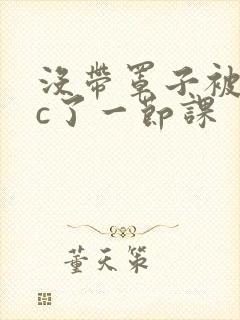 没带罩子被
c了一节课
董天策